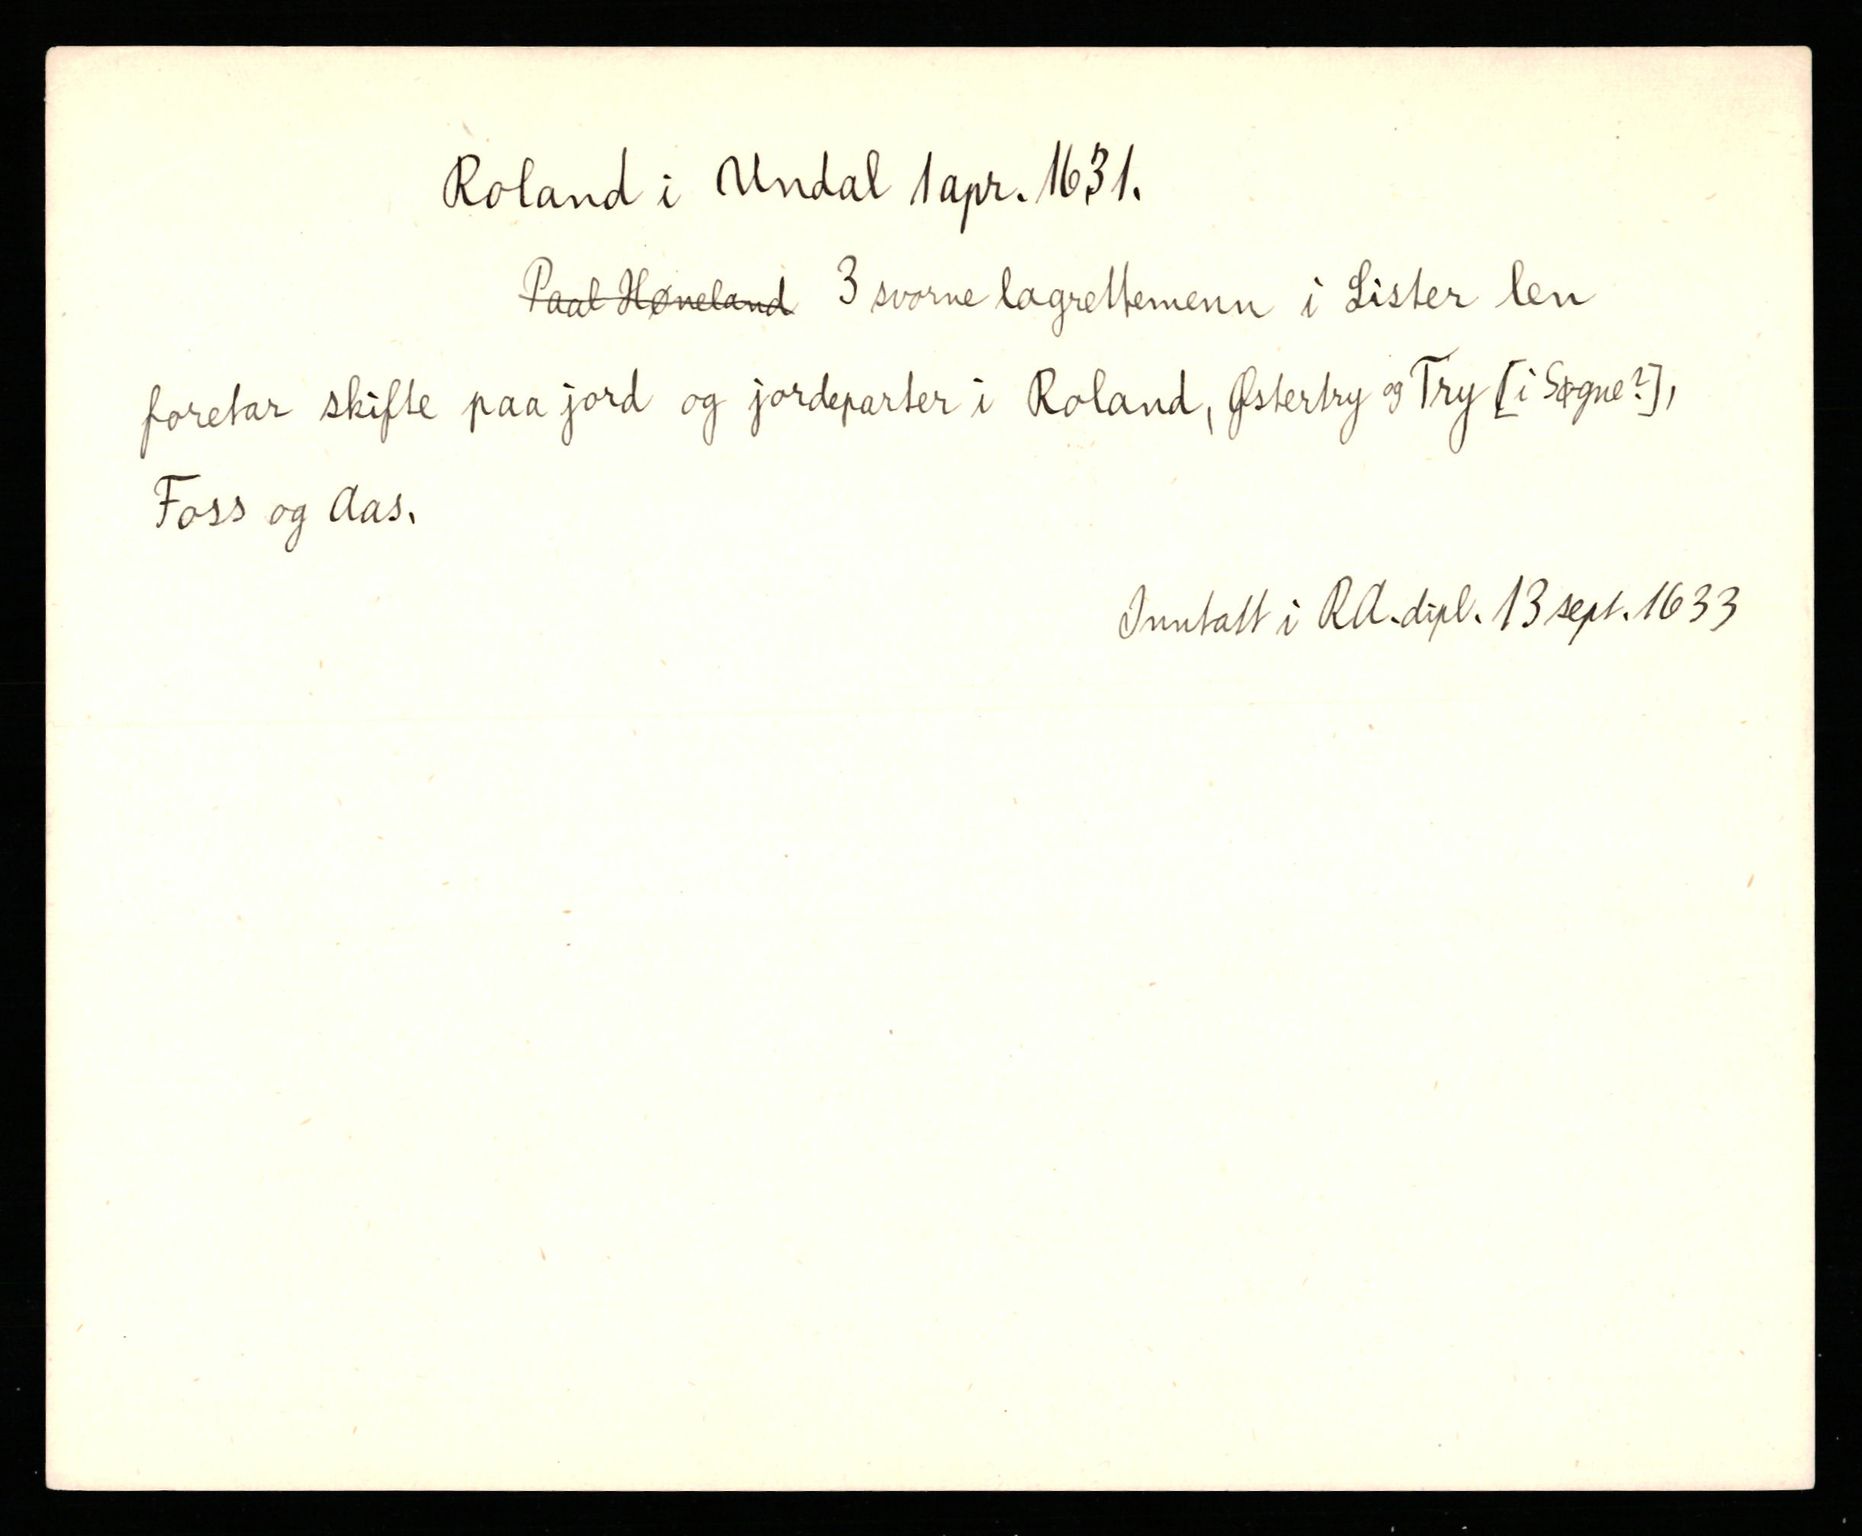 Roland i Undal 1 apr. 1631.
Paal Høneland 3 svorne lagrettemenn i Lister len
foretar skifte paa jord og jordeparter i Roland, Østertry og Try [i Søgne?],
Foss og Aas.
Inntatt i RA. dipl. 13 sept. 1633